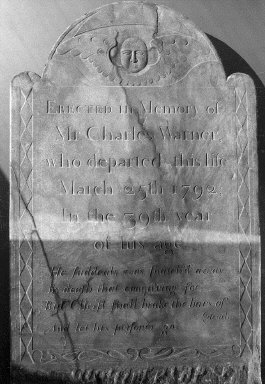 Erected in Memory of
Mr. Charles Warner,
who departed this life
March 25th 1792,
In the 39th year
of his age.
He suddenly was snatch'd away
by death that
But Christ shall break the
And let his